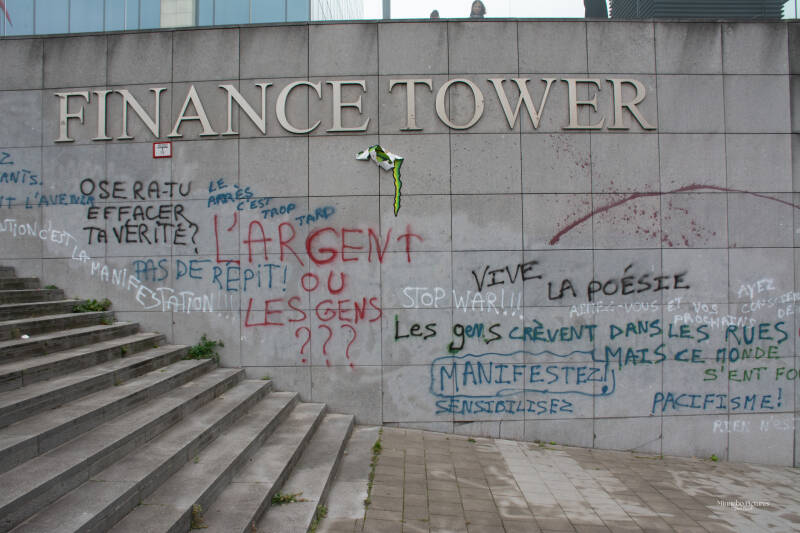 FINANCE TOWER
ANTS.
T L'AVENIR
OSERA-TU
EFFACER
TA VÉRITÉ?
LE
APRÈS
C'EST
TROP
TARD
UTION C'EST LA MANIFESTATION!!!
PAS DE RÉPIT!
L'ARGENT
OU
LES GENS
???
STOP WAR!!!
VIVE LA POÉSIE
AYEZ
AIMEZ-VOUS ET VOS
PROCHAINS
Les gens CRÈVENT DANS LES RUES
MAIS CE MONDE
S'ENT FO
MANIFESTEZ!
SENSIBILISEZ
PACIFISME!
RIEN N'EST
Minnebo Pictures